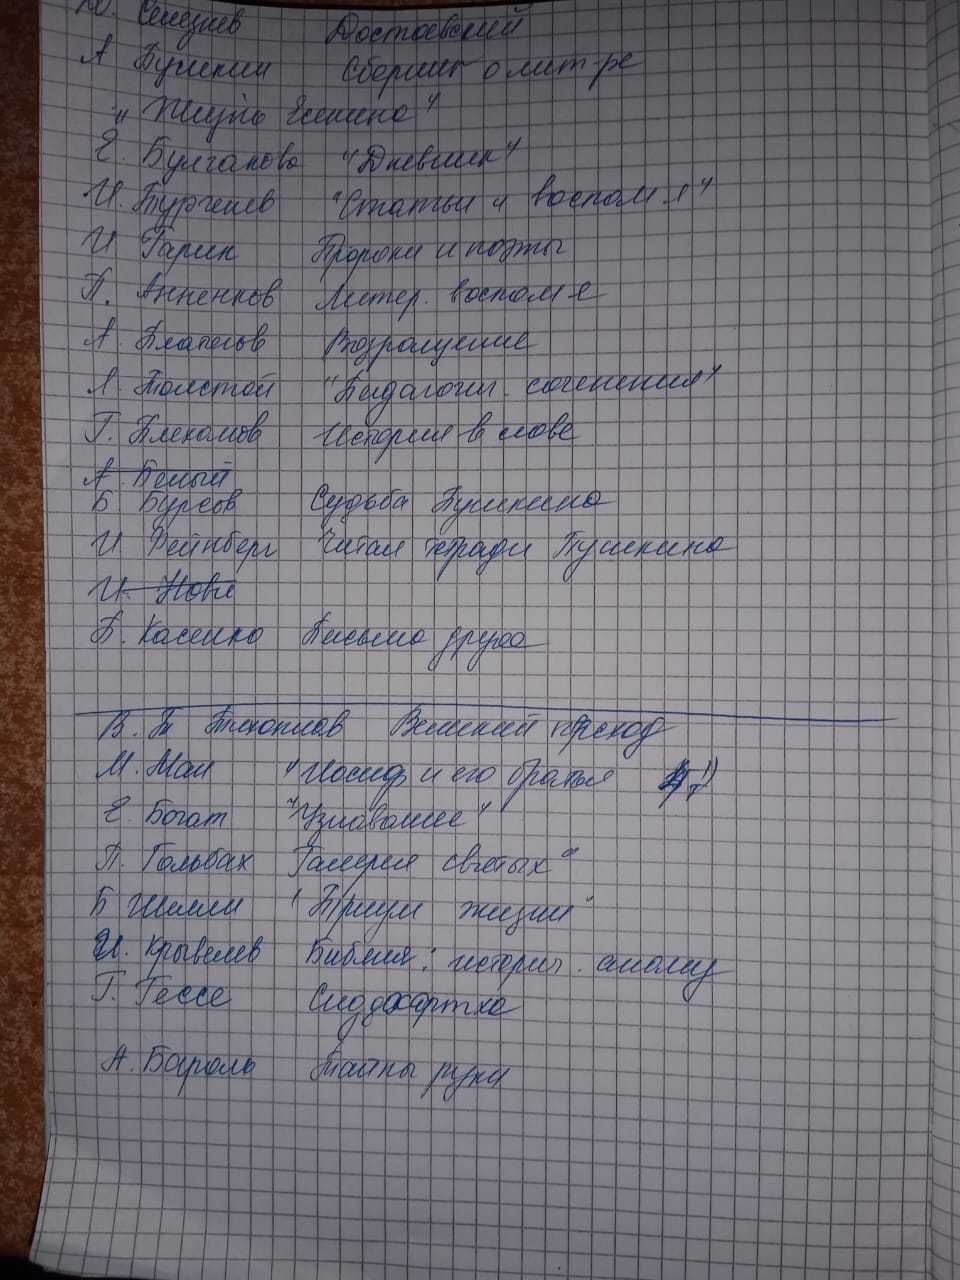 Ю. Селезнев Достоевский
А Пушкин Сборник о лит-ре
"Жизнь Есенина"
Е. Булгакова "Дневник"
И. Тургенев "Статьи и воспом-я"
И. Гарин Пророки и поэты
П. Анненков Литер. воспом-е
А. Платонов Возвращение
Л. Толстой "Педагогич. сочинения"
Г. Плеханов История в слове
А. Белый
Б Бурсов Судьба Пушкина
И Фейнберг Читая тетради Пушкина
И. Нови
Б. Касенко Письмо друга
В. Т Тихоплав Великий переход
Т. Манн "Иосиф и его братья"
Е. Богат "Узнавание"
П. Гольбах Галерея святых"
Б Шелли "Триум жизни"
И. Крывелев Библия: историч. анализ
Г. Гессе Сиддхартха
А. Барроль Тайны руки